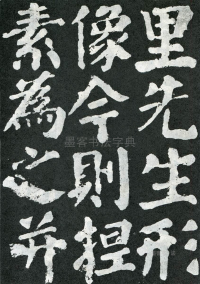 里先生形
像今則捏
素為之并
墨客书法字典